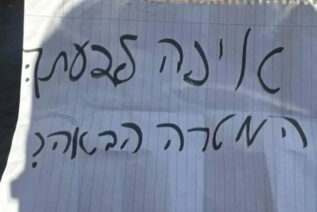 איפה לדעתך:
המטרה הבאה?